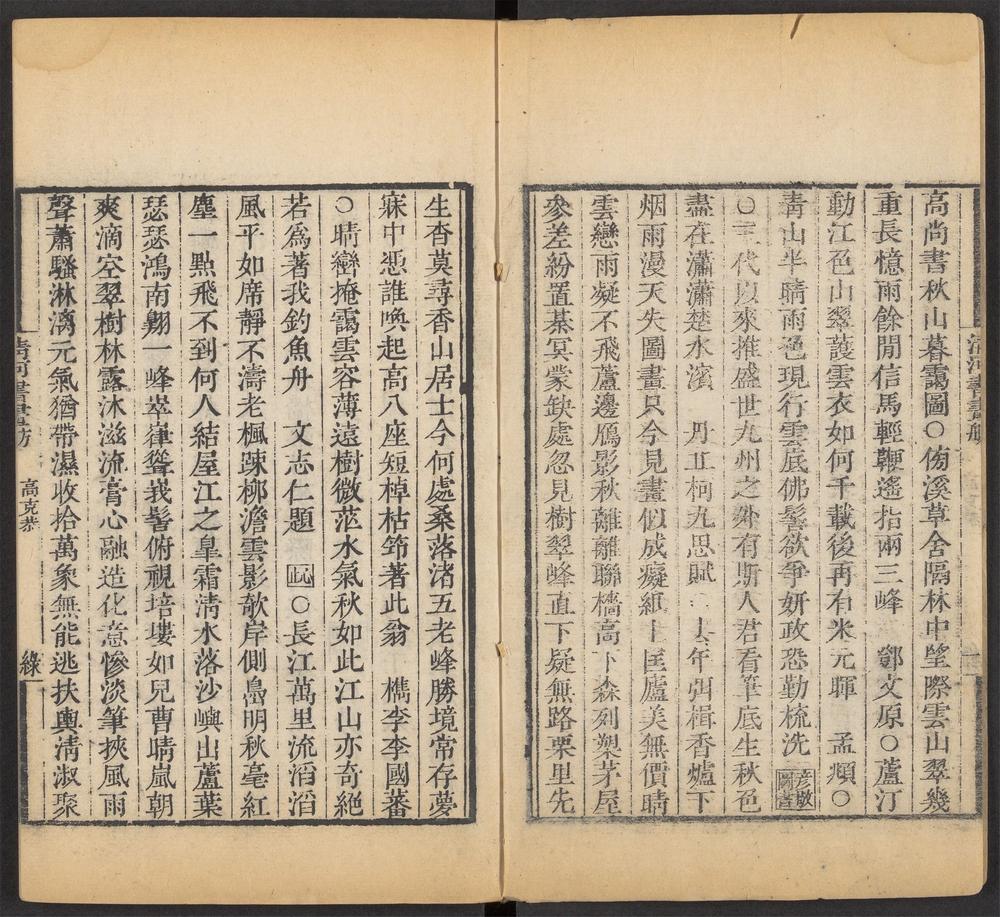 高尚書秋山暮靄圖○傍溪草舍隔林中望際雲山翠幾
重長憶雨餘閒信馬輕鞭遙指兩三峰　鄧文原○蘆汀
動江色山翠護雲衣如何千載後再有米元暉　孟頫○
靑山半晴雨色現行雲底佛髻欲爭妍政恐勤梳洗　彦敬圖書
○三代以來推盛世九州之外有斯人君看筆底生秋色
盡在瀟瀟楚水濱　丹丘柯九思賦　年弭楫香爐下
烟雨漫天失圖畫只今見畫似成癡紙上匡廬美無價晴
雲戀雨凝不飛蘆邊鴈影秋離離聯檣高下森列塑茅屋
參差紛置棊冥蒙缺處忽見樹翠峰直下疑無路栗里先
淸河書畫舫
生杳莫尋香山居士今何處桑落渚五老峰勝境常存夢
寐中憑誰喚起高八座短棹枯笻著此翁　檇李李國蕃
○晴巒掩靄雲容薄遠樹微茫水氣秋如此江山亦奇絕
若爲著我釣魚舟　文志仁題　○長江萬里流滔滔
風平如席靜不濤老楓疎柳澹雲影欹岸側島明秋毫紅
塵一點飛不到何人結屋江之臯霜淸水落沙嶼出蘆葉
瑟瑟鴻南翺一峰崒嵂聳峩髻俯視培塿如兒曹晴嵐朝
爽滴空翠樹林露沐滋流膏心融造化意慘淡筆挾風雨
聲蕭騷淋漓元氣猶帶濕收拾萬象無能逃扶輿淸淑聚
淸河書畫舫　高克恭　綠